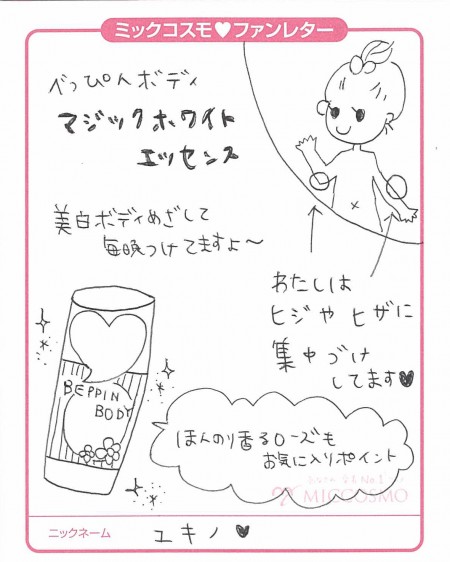 ミックコスモ♥ファンレター
べっぴんボディ
マジックホワイト
エッセンス
美白ボディめざして
毎晩つけてますよ～
わたしは
ヒジや ヒザに
集中づけ
してます♥
BEPPIN
BODY
ほんのり香るローズも
お気に入りポイント
No.1
MICCOSMO
ニックネーム ユキノ♥